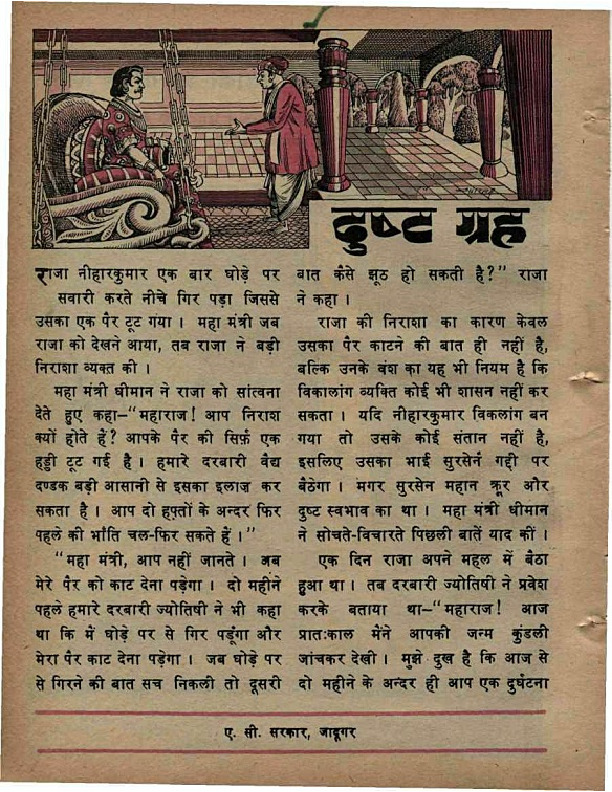 दुष्ट ग्रह
राजा नीहारकुमार एक बार घोड़े पर
सवारी करते नीचे गिर पड़ा जिससे
उसका एक पैर टूट गया । महा मंत्री जब
राजा को देखने आया, तब राजा ने बड़ी
निराशा व्यक्त की ।
महा मंत्री धीमान ने राजा को सांत्वना
देते हुए कहा–"महाराज! आप निराश
क्यों होते हैं? आपके पैर की सिर्फ़ एक
हड्डी टूट गई है । हमारे दरबारी वैद्य
दण्डक बड़ी आसानी से इसका इलाज कर
सकता है । आप दो हफ़्तों के अन्दर फिर
पहले की भाँति चल-फिर सकते हैं ।"
"महा मंत्री, आप नहीं जानते । अब
मेरे पैर को काट देना पड़ेगा । दो महीने
पहले हमारे दरबारी ज्योतिषी ने भी कहा
था कि में घोड़े पर से गिर पड़ूंगा और
मेरा पैर काट देना पड़ेगा । जब घोड़े पर
से गिरने की बात सच निकली तो दूसरी
बात कैसे झूठ हो सकती है?" राजा
ने कहा ।
राजा की निराशा का कारण केवल
उसका पैर काटने की बात ही नहीं है,
बल्कि उनके वंश का यह भी नियम है कि
विकालांग व्यक्ति कोई भी शासन नहीं कर
सकता । यदि नीहारकुमार विकलांग बन
गया तो उसके कोई संतान नहीं है,
इसलिए उसका भाई सुरसेन गद्दी पर
बैठेगा । मगर सुरसेन महान क्रूर और
दुष्ट स्वभाव का था । महा मंत्री धीमान
ने सोचते-विचारते पिछली बातें याद कीं ।
एक दिन राजा अपने महल में बैठा
हुआ था । तब दरबारी ज्योतिषी ने प्रवेश
करके बताया था–"महाराज! आज
प्रातःकाल मैंने आपकी जन्म कुंडली
जांचकर देखी । मुझे दुख है कि आज से
दो महीने के अन्दर ही आप एक दुर्घटना
ए. सी. सरकार, जादूगर